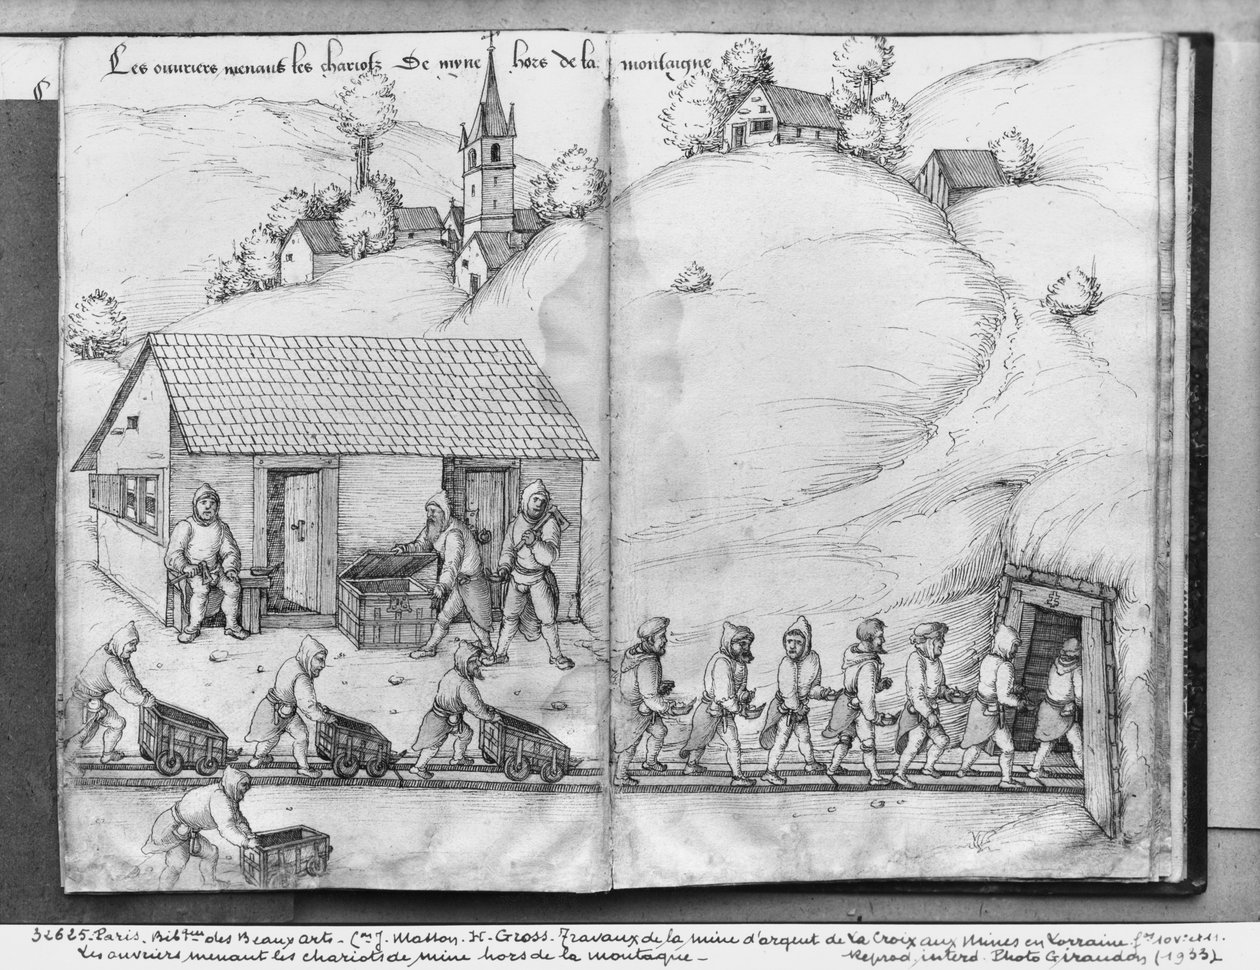 Les ouvriers menant les chariotz De myne hors de la montaigne
32625. Paris. Bibtque des Beaux arts. (on J. Masson. H. Gross. Travaux de la mine d'argent de La Croix aux Mines en Lorraine. fos 10 vo et 11.
Les ouvriers menant les chariots de mine hors de la montagne - Reprod. interd. Photo Giraudon (1933)